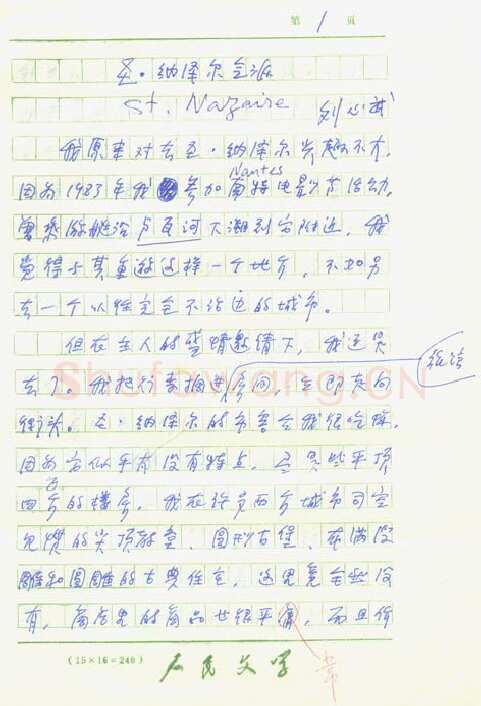 第 1 页
圣·纳泽尔氽海
St. Nazaire 刘心武
我原来对去圣·纳泽尔兴趣不大，
Nantes
因为1983年我参加南特电影节活动，
曾乘游艇沿卢瓦河下溯到它附近，我
觉得与其重游这样一个地方，不如另
去一个以往完全不沾边的城市。
但在主人的盛情邀请下，我还是
去了。我把行李搁进房间，立即奔向
街头。圣·纳泽尔的市容令我很吃惊，
因为它似乎太没有特点，尽是些平顶
四方的楼房，我在许多西方城市司空
见惯的尖顶教堂、圆形古堡、布满浮
雕和圆雕的古典住宅，这里竟全然没
有，商店里的商品也很平庸，而且价
常
(15×16=240)
人民文学
Shufawang.CN